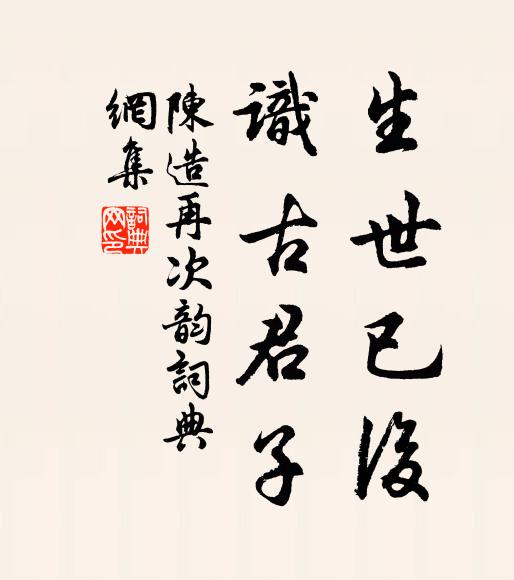 生世已後
識古君子
陳造再次韵詞典
網集
詞典網印